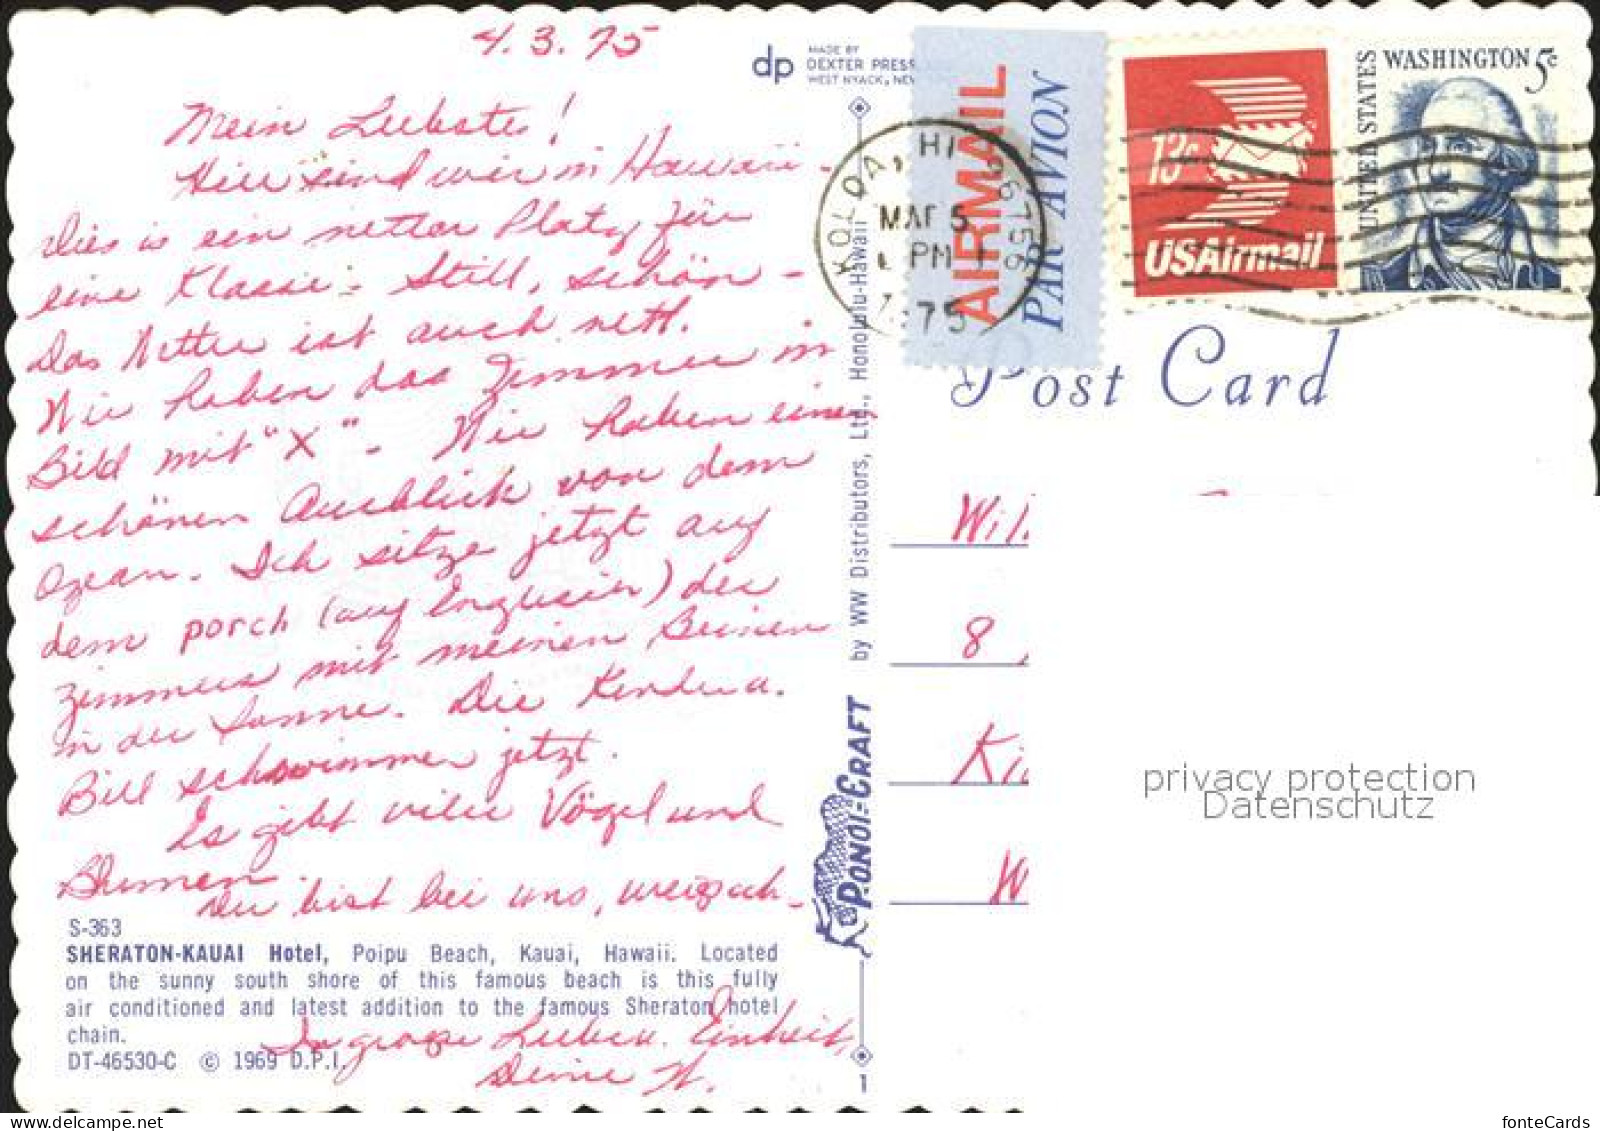 4.3.75
Mein Liebster!
Hier sind wir in Hawaii -
Dies is ein netter Platz für
eine Klasse: Still, schön -
Das Wetter ist auch nett.
Wir haben das Zimmer in
Bild mit "X" - Wir haben einen
schönen Ausblick von dem
Ozean. Ich sitze jetzt auf
dem porch (auf Englisch) des
Zimmers mit meinen Beinen
in der Sonne. Die Kinder u.
Bill schwimmen jetzt.
Es gibt viele Vögel und
Blumen.
Du bist bei uns,
S-363
SHERATON-KAUAI Hotel, Poipu Beach, Kauai, Hawaii. Located
on the sunny south shore of this famous beach is this fully
air conditioned and latest addition to the famous Sheraton hotel
chain.
DT-46530-C © 1969 D.P.I.
In grosse Liebe u. Einheit,
Deine W.
dp MADE BY
DEXTER PRESS
WEST NYACK, NEW
by WW Distributors, Ltd., Honolulu-Hawaii
PONOI-CRAFT
1
AIRMAIL
PAR AVION
KOLOA, HI 96756
MAR 5
PM
1975
13c
USAirmail
UNITED STATES
WASHINGTON 5c
Post Card
Wil
8
Ki
W
privacy protection
Datenschutz
fonteCards